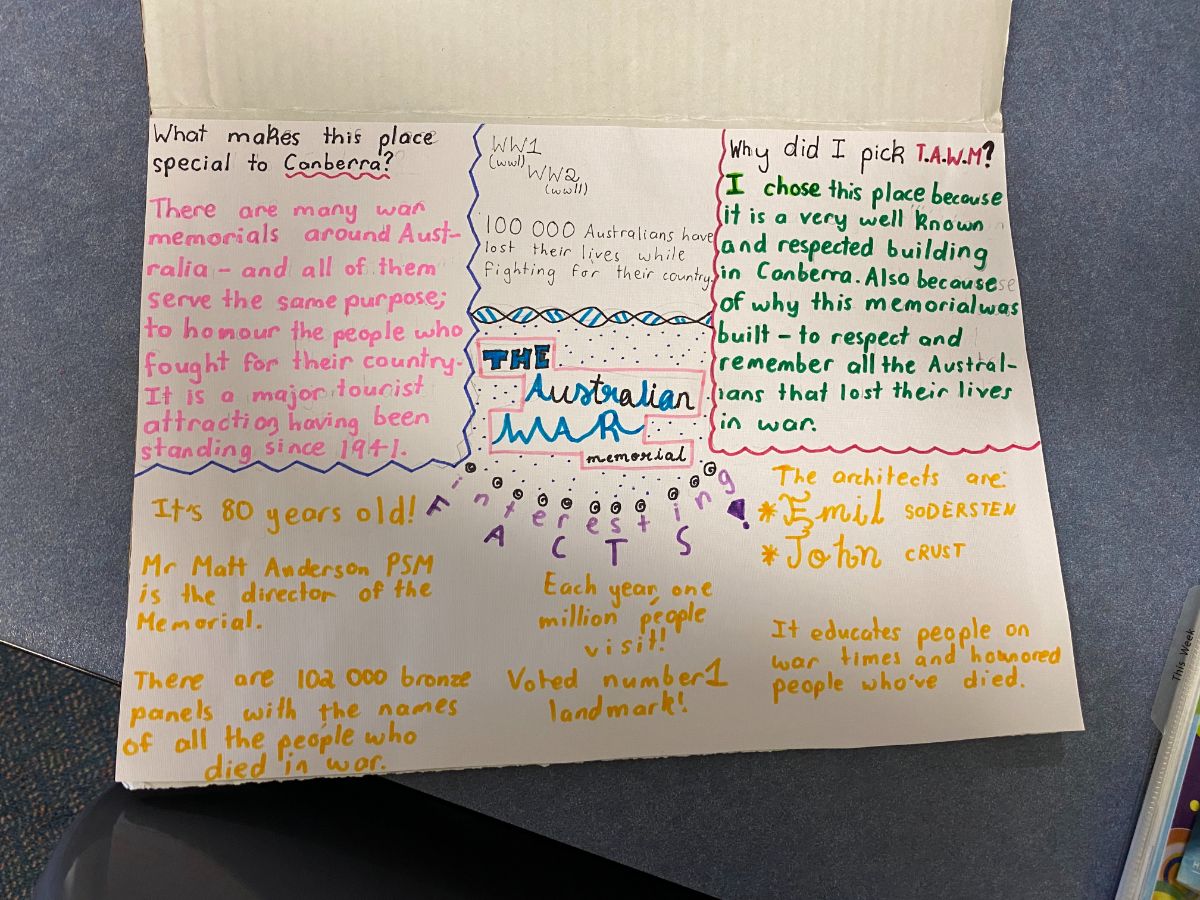 What makes this place
special to Canberra?
There are many war
memorials around Aust-
ralia - and all of them
serve the same purpose;
to honour the people who
fought for their country.
It is a major tourist
attraction having been
standing since 1941.
WW1
(wwI)
WW2
(wwII)
100 000 Australians have
lost their lives while
fighting for their country.
Why did I pick T.A.W.M?
I chose this place because
it is a very well known
and respected building
in Canberra. Also because
of why this memorial was
built - to respect and
remember all the Austral-
ians that lost their lives
in war.
THE
Australian
WAR
memorial
interesting
FACTS!
It's 80 years old!
Mr Matt Anderson PSM
is the director of the
Memorial.
There are 102 000 bronze
panels with the names
of all the people who
died in war.
Each year, one
million people
visit!
Voted number 1
landmark!
The architects are:
* Emil SODERSTEN
* John CRUST
It educates people on
war times and honored
people who've died.
This Week